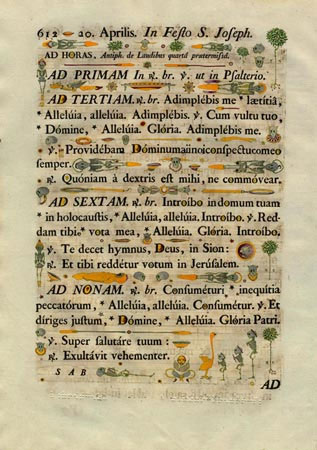 612 20. Aprilis. In Festo S. Ioseph.
AD HORAS, Antiph. de Laudibus quartâ prætermissâ.
AD PRIMAM In ℟. br. ℣. ut in Psalterio.
AD TERTIAM. ℟. br. Adimplébis me * lætítiâ,
* Allelúia, allelúia. Adimplébis. ℣. Cum vultu tuo
* Dómine, * Allelúia. Glória. Adimplébis me.
℣. Providébam Dóminum in conspectu meo
semper.
℟. Quóniam à dextris est mihi, ne commóvear.
AD SEXTAM. ℟. br. Introíbo in domum tuam
in holocaustis, * Allelúia, allelúia. Introíbo. ℣. Red-
dam tibi * vota mea, * Allelúia. Glória. Introíbo.
℣. Te decet hymnus, Deus, in Sion:
℟. Et tibi reddétur votum in Jerúsalem.
AD NONAM. ℟. br. Consumétur * inequítia
peccatórum, * Allelúia, allelúia. Consumétur. ℣. Et
díriges justum, * Dómine, * Allelúia. Glória Patri.
℣. Super salutáre tuum :
℟. Exultávit vehementer.
S A B
AD